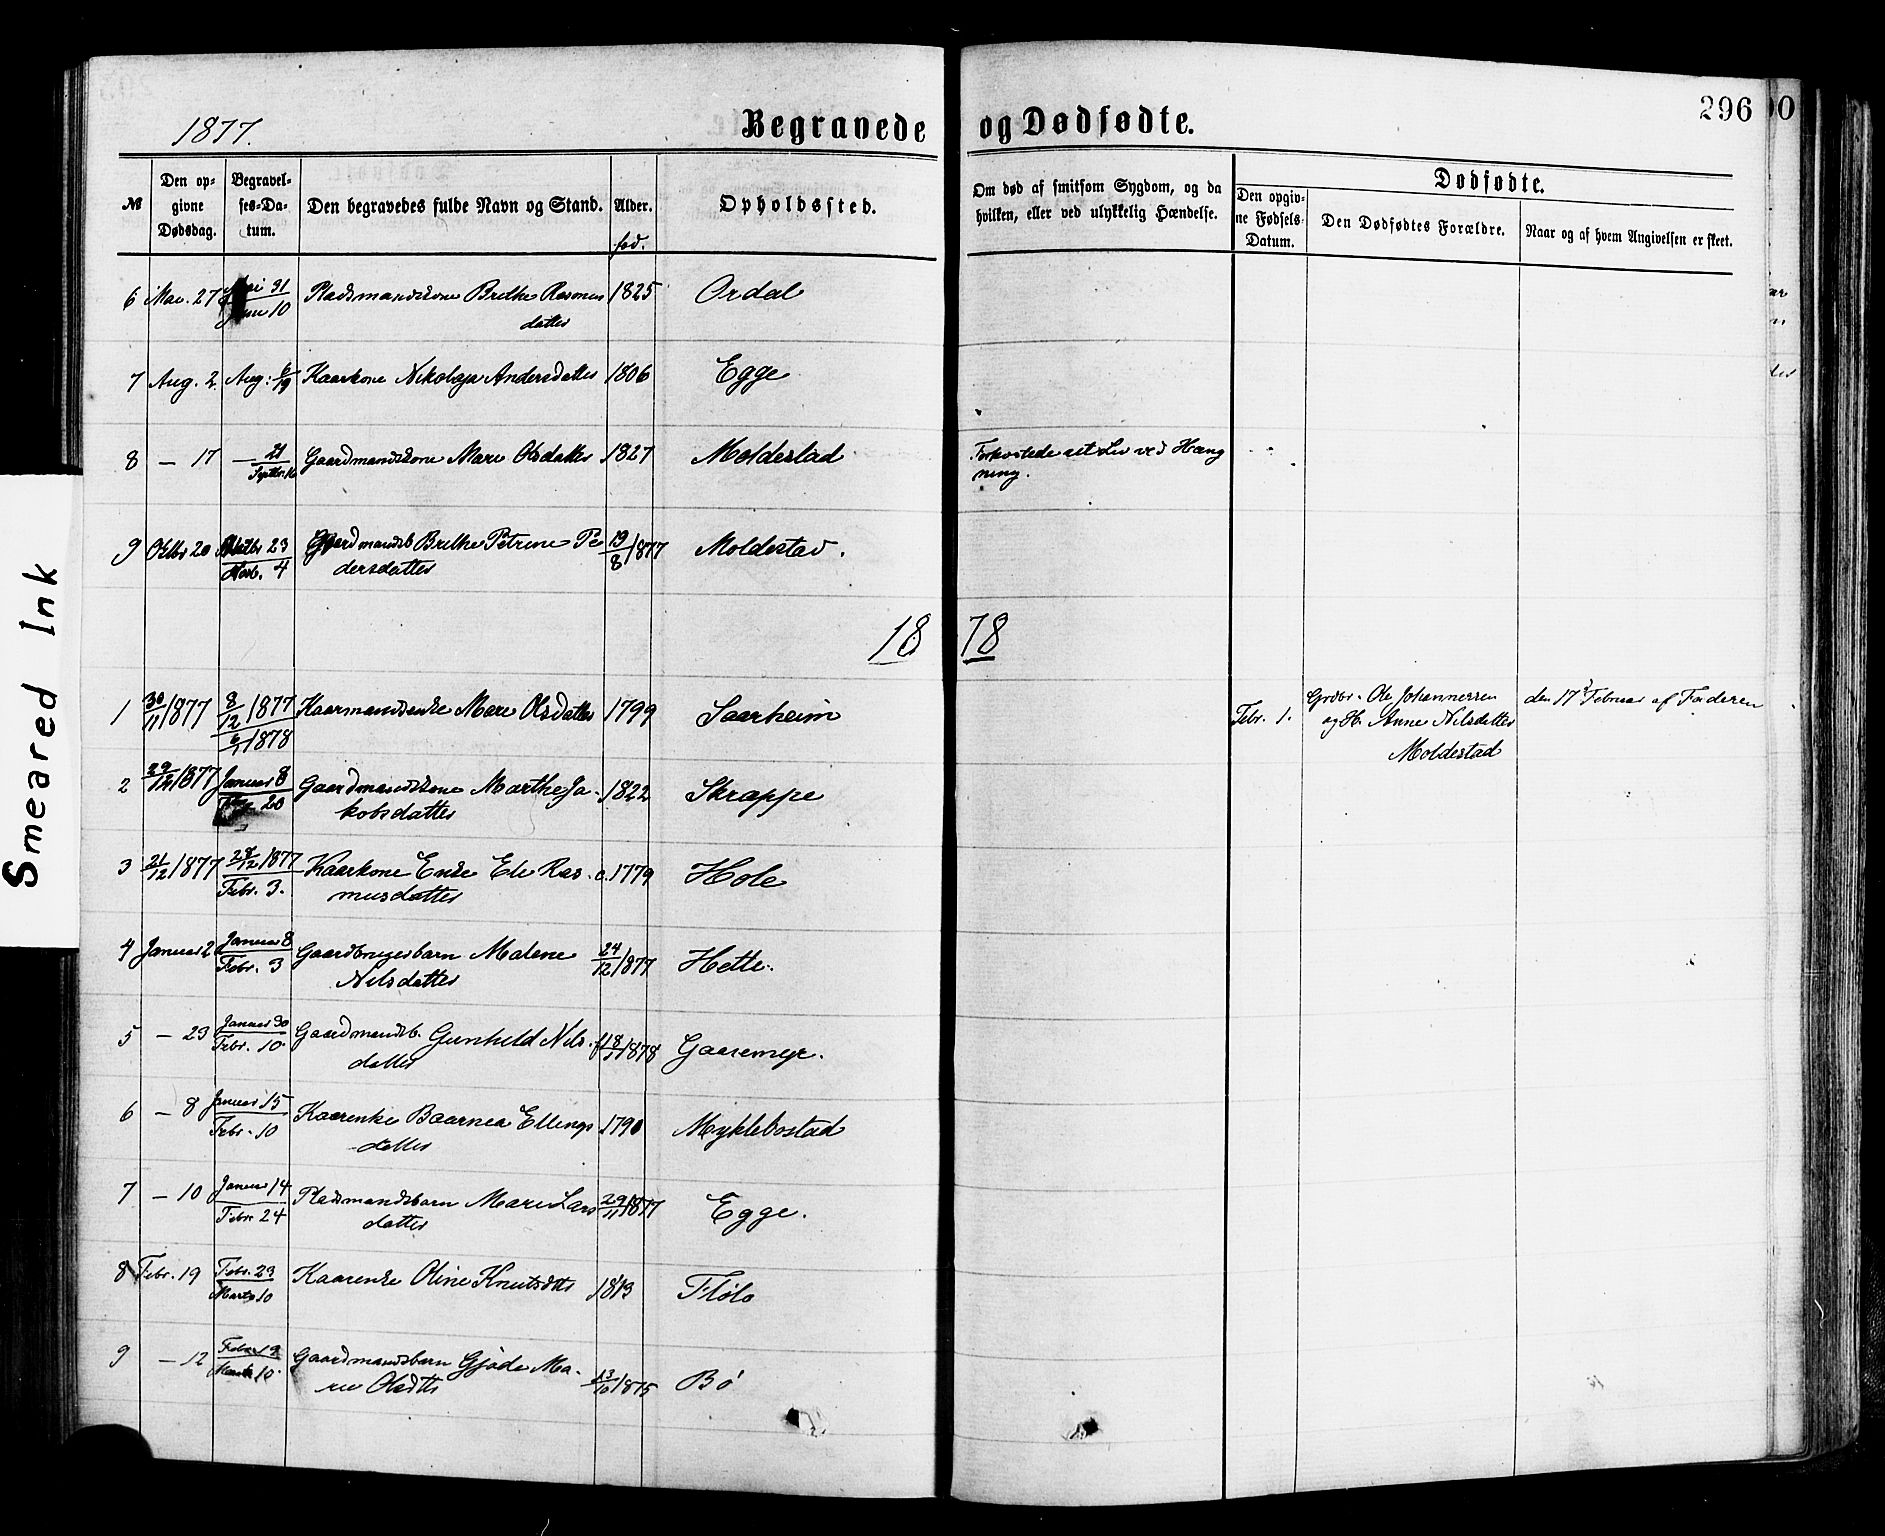 1877.
Begravede og Dødfødte.
296
Smeared Ink
№
Den op-
givne
Dødsdag.
Begravel-
ses-Da-
tum.
Den begravedes fulde Navn og Stand.
Alder.
fød.
Opholdssted.
Om død af smitsom Sygdom, og da
hvilken, eller ved ulykkelig Hændelse.
Dødfødte.
Den opgiv-
ne Fødsels-
Datum.
Den Dødfødtes Forældre.
Naar og af hvem Angivelsen er skeet.
6 Mai. 27 Mai 31 Pladsmandskone Brethe Rasmus 1825 Ordal
Juni 10 datter
7 Aug. 2 Aug: 6/19 Kaarkone Nikolaja Andersdatter 1806 Egge
8 — 17 — 21 Gaardmandskone Mari Olsdatter 1827 Moldestad Forkortede sit Liv ved Hæng
Septbr. 16 ning.
9 Oktbr 20 Oktbr 23 Gaardmandsb Brethe Petrine Pe 19/8 1877 Moldestad.
Novb. 4 dersdatter
1878
1 30/11 1877 8/12 1877 Kaarmandsenke Mari Olsdatter 1799 Saarheim
6/1 1878
Febr. 1. Grdbr. Ole Johannessen den 17 Februar af Faderen
og H. Anne Nilsdatter
Moldestad
2 29/12 1877 Januar 8 Gaardmandskone Marthe Ja- 1822 Skrappe
20 kobsdatter
3 21/12 1877 28/12 1877 Kaarkone Enke Eli Ras- 1779 Hole
Febr. 3. musdatter
4 Januar 2 Januar 8 Gaardbrugerbarn Malene 24/12 1877 Hette.
Febr. 3 Nilsdatter
5 — 23 Januar 30 Gaardmandsb. Gunhild Nils- 18/1 1878 Gaaremyr.
Febr. 10 datter
6 — 8 Januar 15 Kaarenke Baarnea Ellings 1790 Myklebostad
Febr. 10 datter
7 — 10 Januar 14 Pladsmandsbarn Mari Lars 29/11 1877 Egge.
Febr. 24 datter
8 Febr. 19 Febr. 23 Kaarenke Oline Knutsdtr 1813 Flølo
Marts 10
9 — 12 Febr 19 Gaardmandsbarn Gjøde Ma- 13/10 1875 Bø
Marts 10 rie Olsdtr